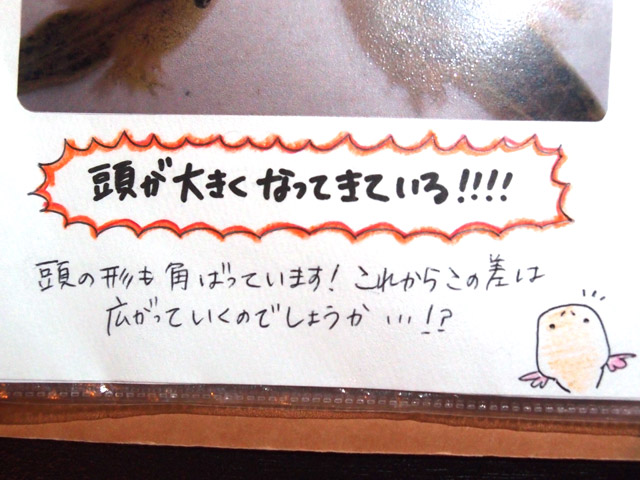 頭が大きくなってきている!!!!
頭の形も角ばっています!これからこの差は
広がっていくのでしょうか…!?